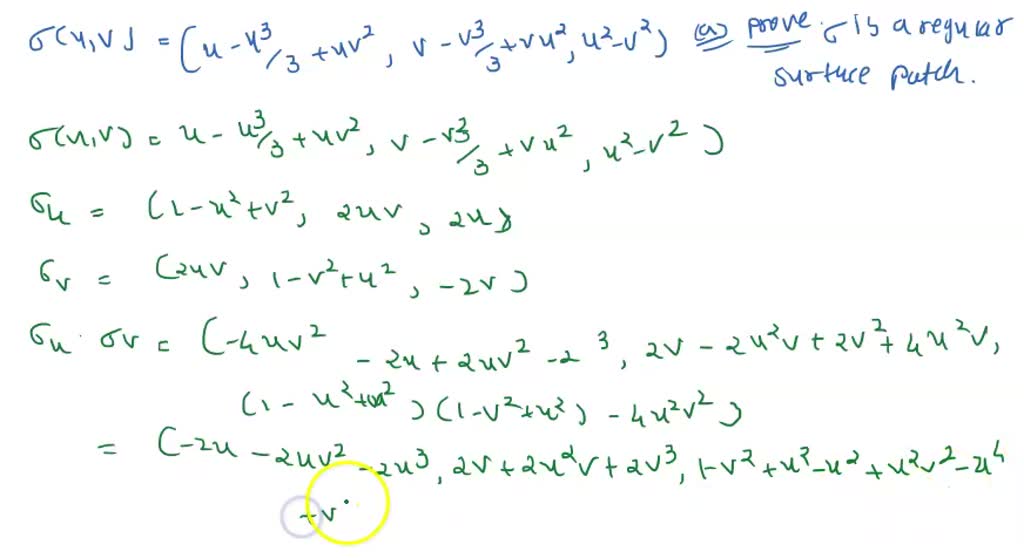 σ(u,v) = (u - u³/3 + uv², v - v³/3 + vu², u² - v²) (a) prove σ is a regular
surface patch.
σ(u,v) = u - u³/3 + uv², v - v³/3 + vu², u² - v²)
σu = (1 - u² + v², 2uv, 2u)
σv = (2uv, 1 - v² + u², -2v)
σu · σv = (-4uv² - 2u + 2uv² - 2 ³, 2v - 2u²v + 2v² + 4u²v,
(1 - u² + ²)(1 - v² + u²) - 4u²v²)
= (-2u - 2uv² - 2u³, 2v + 2u²v + 2v³, 1 - v² + u² - u² + u²v² - u⁴
+ v